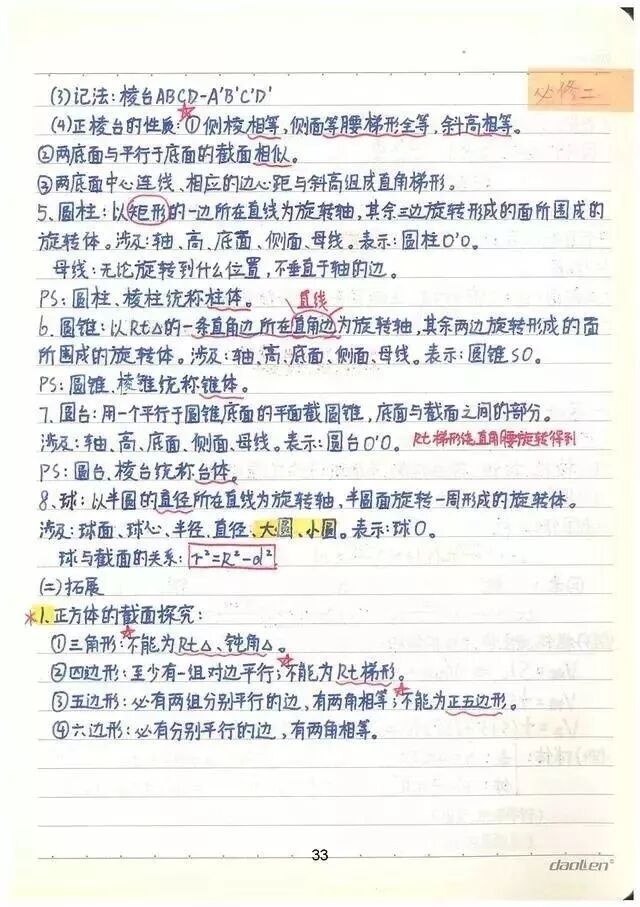 必修二
(3)记法:棱台ABCD-A'B'C'D'
(4)正棱台的性质:①侧棱相等,侧面等腰梯形全等,斜高相等。
②两底面与平行于底面的截面相似。
③两底面中心连线、相应的边心距与斜高组成直角梯形。
5、圆柱:以矩形的一边所在直线为旋转轴,其余三边旋转形成的面所围成的
旋转体。涉及:轴、高、底面、侧面、母线。表示:圆柱O'O。
母线:无论旋转到什么位置,不垂直于轴的边。
PS:圆柱、棱柱统称柱体。
直线
6、圆锥:以Rt△的一条直角边所在直角边为旋转轴,其余两边旋转形成的面
所围成的旋转体。涉及:轴、高、底面、侧面、母线。表示:圆锥SO。
PS:圆锥、棱锥统称锥体。
7、圆台:用一个平行于圆锥底面的平面截圆锥,底面与截面之间的部分。
涉及:轴、高、底面、侧面、母线。表示:圆台O'O。 Rt梯形绕直角腰旋转得到
PS:圆台、棱台统称台体。
8、球:以半圆的直径所在直线为旋转轴,半圆面旋转一周形成的旋转体。
涉及:球面、球心、半径、直径、大圆、小圆。表示:球O。
球与截面的关系:r²=R²-d²
(二)拓展
*1、正方体的截面探究:
①三角形:不能为Rt△、钝角△。
②四边形:至少有一组对边平行;不能为Rt梯形。
③五边形:必有两组分别平行的边,有两角相等;不能为正五边形。
④六边形:必有分别平行的边,有两角相等。
33
daolien